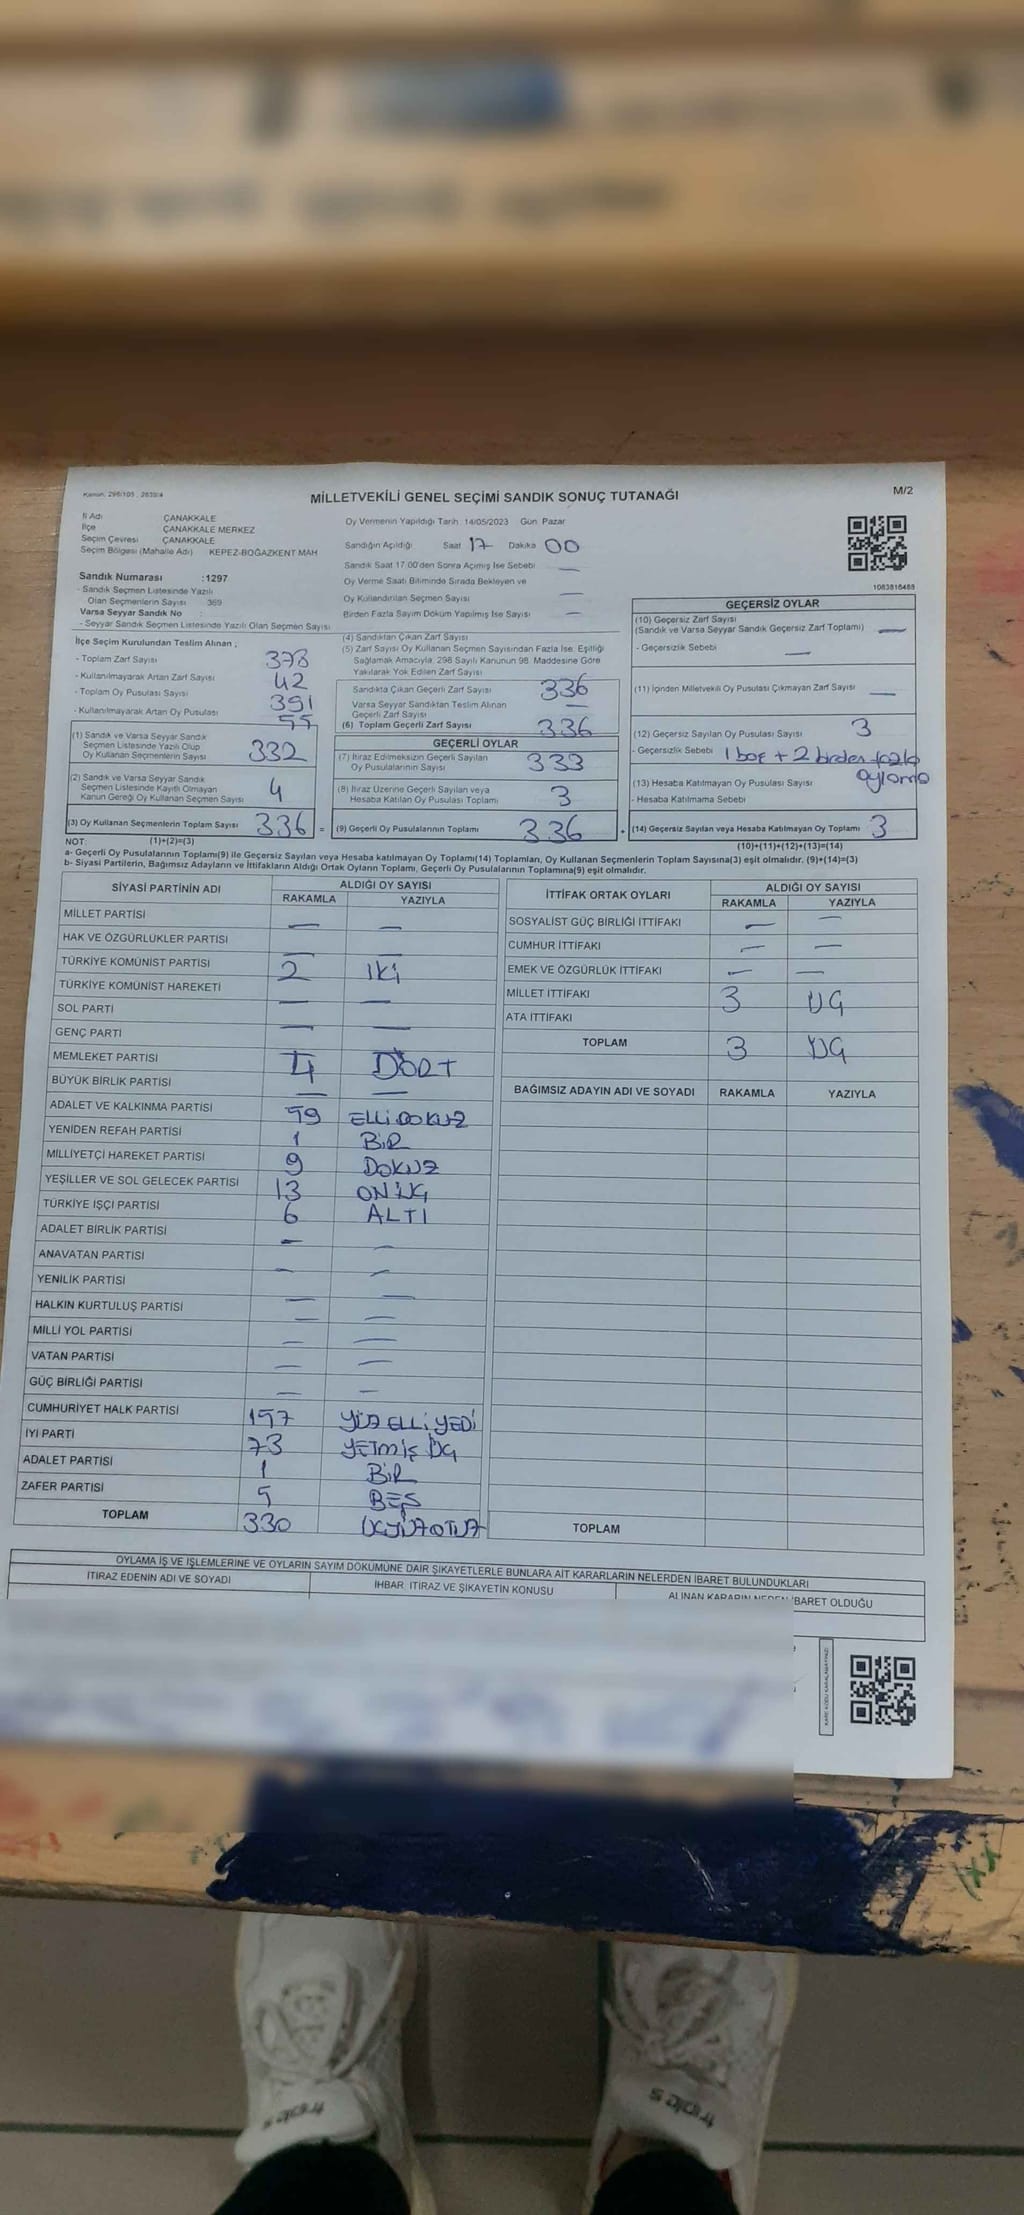 Kanun: 298/105 , 2839/4
MİLLETVEKİLİ GENEL SEÇİMİ SANDIK SONUÇ TUTANAĞI
M/2
İl Adı ÇANAKKALE
İlçe ÇANAKKALE MERKEZ
Seçim Çevresi ÇANAKKALE
Seçim Bölgesi (Mahalle Adı) KEPEZ-BOĞAZKENT MAH
Sandık Numarası :1297
- Sandık Seçmen Listesinde Yazılı
Olan Seçmenlerin Sayısı 369
Varsa Seyyar Sandık No :
- Seyyar Sandık Seçmen Listesinde Yazılı Olan Seçmen Sayısı
Oy Vermenin Yapıldığı Tarih 14/05/2023 Gün Pazar
Sandığın Açıldığı Saat 17 Dakika 00
Sandık Saat 17.00'den Sonra Açılmış İse Sebebi —
Oy Verme Saati Bitiminde Sırada Bekleyen ve
Oy Kullandırılan Seçmen Sayısı —
Birden Fazla Sayım Döküm Yapılmış İse Sayısı —
1083816488
İlçe Seçim Kurulundan Teslim Alınan ;
- Toplam Zarf Sayısı 378
- Kullanılmayarak Artan Zarf Sayısı 42
- Toplam Oy Pusulası Sayısı 391
- Kullanılmayarak Artan Oy Pusulası 55
(1) Sandık ve Varsa Seyyar Sandık
Seçmen Listesinde Yazılı Olup
Oy Kullanan Seçmenlerin Sayısı 332
(2) Sandık ve Varsa Seyyar Sandık
Seçmen Listesinde Kayıtlı Olmayan
Kanun Gereği Oy Kullanan Seçmen Sayısı 4
(3) Oy Kullanan Seçmenlerin Toplam Sayısı 336 =
(4) Sandıktan Çıkan Zarf Sayısı
(5) Zarf Sayısı Oy Kullanan Seçmen Sayısından Fazla İse, Eşitliği
Sağlamak Amacıyla, 298 Sayılı Kanunun 98. Maddesine Göre
Yakılarak Yok Edilen Zarf Sayısı
Sandıkta Çıkan Geçerli Zarf Sayısı 336
Varsa Seyyar Sandıktan Teslim Alınan
Geçerli Zarf Sayısı —
(6) Toplam Geçerli Zarf Sayısı 336
GEÇERLİ OYLAR
(7) İtiraz Edilmeksizin Geçerli Sayılan
Oy Pusulalarının Sayısı 333
(8) İtiraz Üzerine Geçerli Sayılan veya
Hesaba Katılan Oy Pusulası Toplamı 3
(9) Geçerli Oy Pusulalarının Toplamı 336 +
GEÇERSİZ OYLAR
(10) Geçersiz Zarf Sayısı
(Sandık ve Varsa Seyyar Sandık Geçersiz Zarf Toplamı) —
- Geçersizlik Sebebi —
(11) İçinden Milletvekili Oy Pusulası Çıkmayan Zarf Sayısı —
(12) Geçersiz Sayılan Oy Pusulası Sayısı 3
- Geçersizlik Sebebi 1 boş + 2 birden fazla
oylama
(13) Hesaba Katılmayan Oy Pusulası Sayısı
- Hesaba Katılmama Sebebi
(14) Geçersiz Sayılan veya Hesaba Katılmayan Oy Toplamı 3
NOT: (1)+(2)=(3)
(10)+(11)+(12)+(13)=(14)
a- Geçerli Oy Pusulalarının Toplamı(9) ile Geçersiz Sayılan veya Hesaba katılmayan Oy Toplamı(14) Toplamları, Oy Kullanan Seçmenlerin Toplam Sayısına(3) eşit olmalıdır. (9)+(14)=(3)
b- Siyasi Partilerin, Bağımsız Adayların ve İttifakların Aldığı Ortak Oyların Toplamı, Geçerli Oy Pusulalarının Toplamına(9) eşit olmalıdır.
SİYASİ PARTİNİN ADI ALDIĞI OY SAYISI
RAKAMLA YAZIYLA
MİLLET PARTİSİ — —
HAK VE ÖZGÜRLÜKLER PARTİSİ — —
TÜRKİYE KOMÜNİST PARTİSİ 2 İKİ
TÜRKİYE KOMÜNİST HAREKETİ — —
SOL PARTİ — —
GENÇ PARTİ
MEMLEKET PARTİSİ 4 DÖRT
BÜYÜK BİRLİK PARTİSİ — —
ADALET VE KALKINMA PARTİSİ 59 ELLİDOKUZ
YENİDEN REFAH PARTİSİ 1 BİR
MİLLİYETÇİ HAREKET PARTİSİ 9 DOKUZ
YEŞİLLER VE SOL GELECEK PARTİSİ 13 ONÜÇ
TÜRKİYE İŞÇİ PARTİSİ 6 ALTI
ADALET BİRLİK PARTİSİ — —
ANAVATAN PARTİSİ — —
YENİLİK PARTİSİ — —
HALKIN KURTULUŞ PARTİSİ — —
MİLLİ YOL PARTİSİ — —
VATAN PARTİSİ — —
GÜÇ BİRLİĞİ PARTİSİ — —
CUMHURİYET HALK PARTİSİ 157 YÜZ ELLİ YEDİ
İYİ PARTİ 73 YETMİŞ ÜÇ
ADALET PARTİSİ 1 BİR
ZAFER PARTİSİ 5 BEŞ
TOPLAM 330 ÜÇYÜZOTUZ
İTTİFAK ORTAK OYLARI ALDIĞI OY SAYISI
RAKAMLA YAZIYLA
SOSYALİST GÜÇ BİRLİĞİ İTTİFAKI — —
CUMHUR İTTİFAKI — —
EMEK VE ÖZGÜRLÜK İTTİFAKI — —
MİLLET İTTİFAKI 3 ÜÇ
ATA İTTİFAKI
TOPLAM 3 ÜÇ
BAĞIMSIZ ADAYIN ADI VE SOYADI RAKAMLA YAZIYLA
TOPLAM
OYLAMA İŞ VE İŞLEMLERİNE VE OYLARIN SAYIM DÖKÜMÜNE DAİR ŞİKAYETLERLE BUNLARA AİT KARARLARIN NELERDEN İBARET BULUNDUKLARI
İTİRAZ EDENİN ADI VE SOYADI İHBAR, İTİRAZ VE ŞİKAYETİN KONUSU ALINAN KARARIN NEDEN İBARET OLDUĞU
triple s
triple s